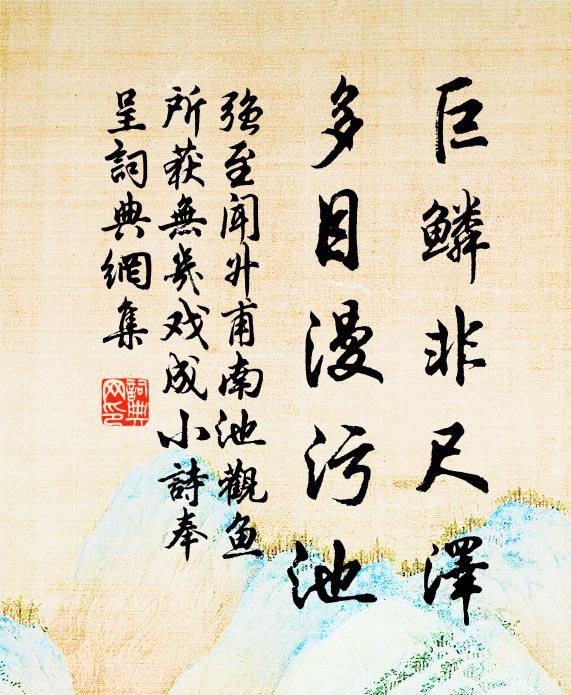 巨鳞非尺澤
多目漫污池
强至闻升甫南池觀鱼
所获無幾戏成小詩奉
呈詞典網集
詞典网印